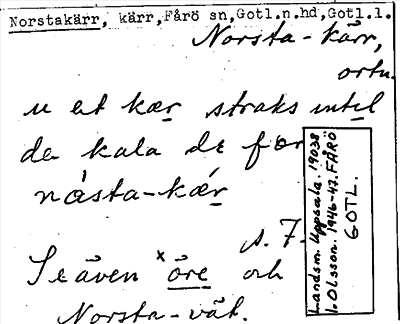 Norstakärr, kärr, Fårö sn, Gotl.n.hd, Gotl.l.
Norsta-kärr,
ortn.
u et kær straks intil
de kala de for
nåsta-kær
s. 7.
Se även ˣöre och
Norsta-vät.
Landsm. Uppsala. 19038
I. Olsson. 1946-47. FÅRÖ
GOTL.